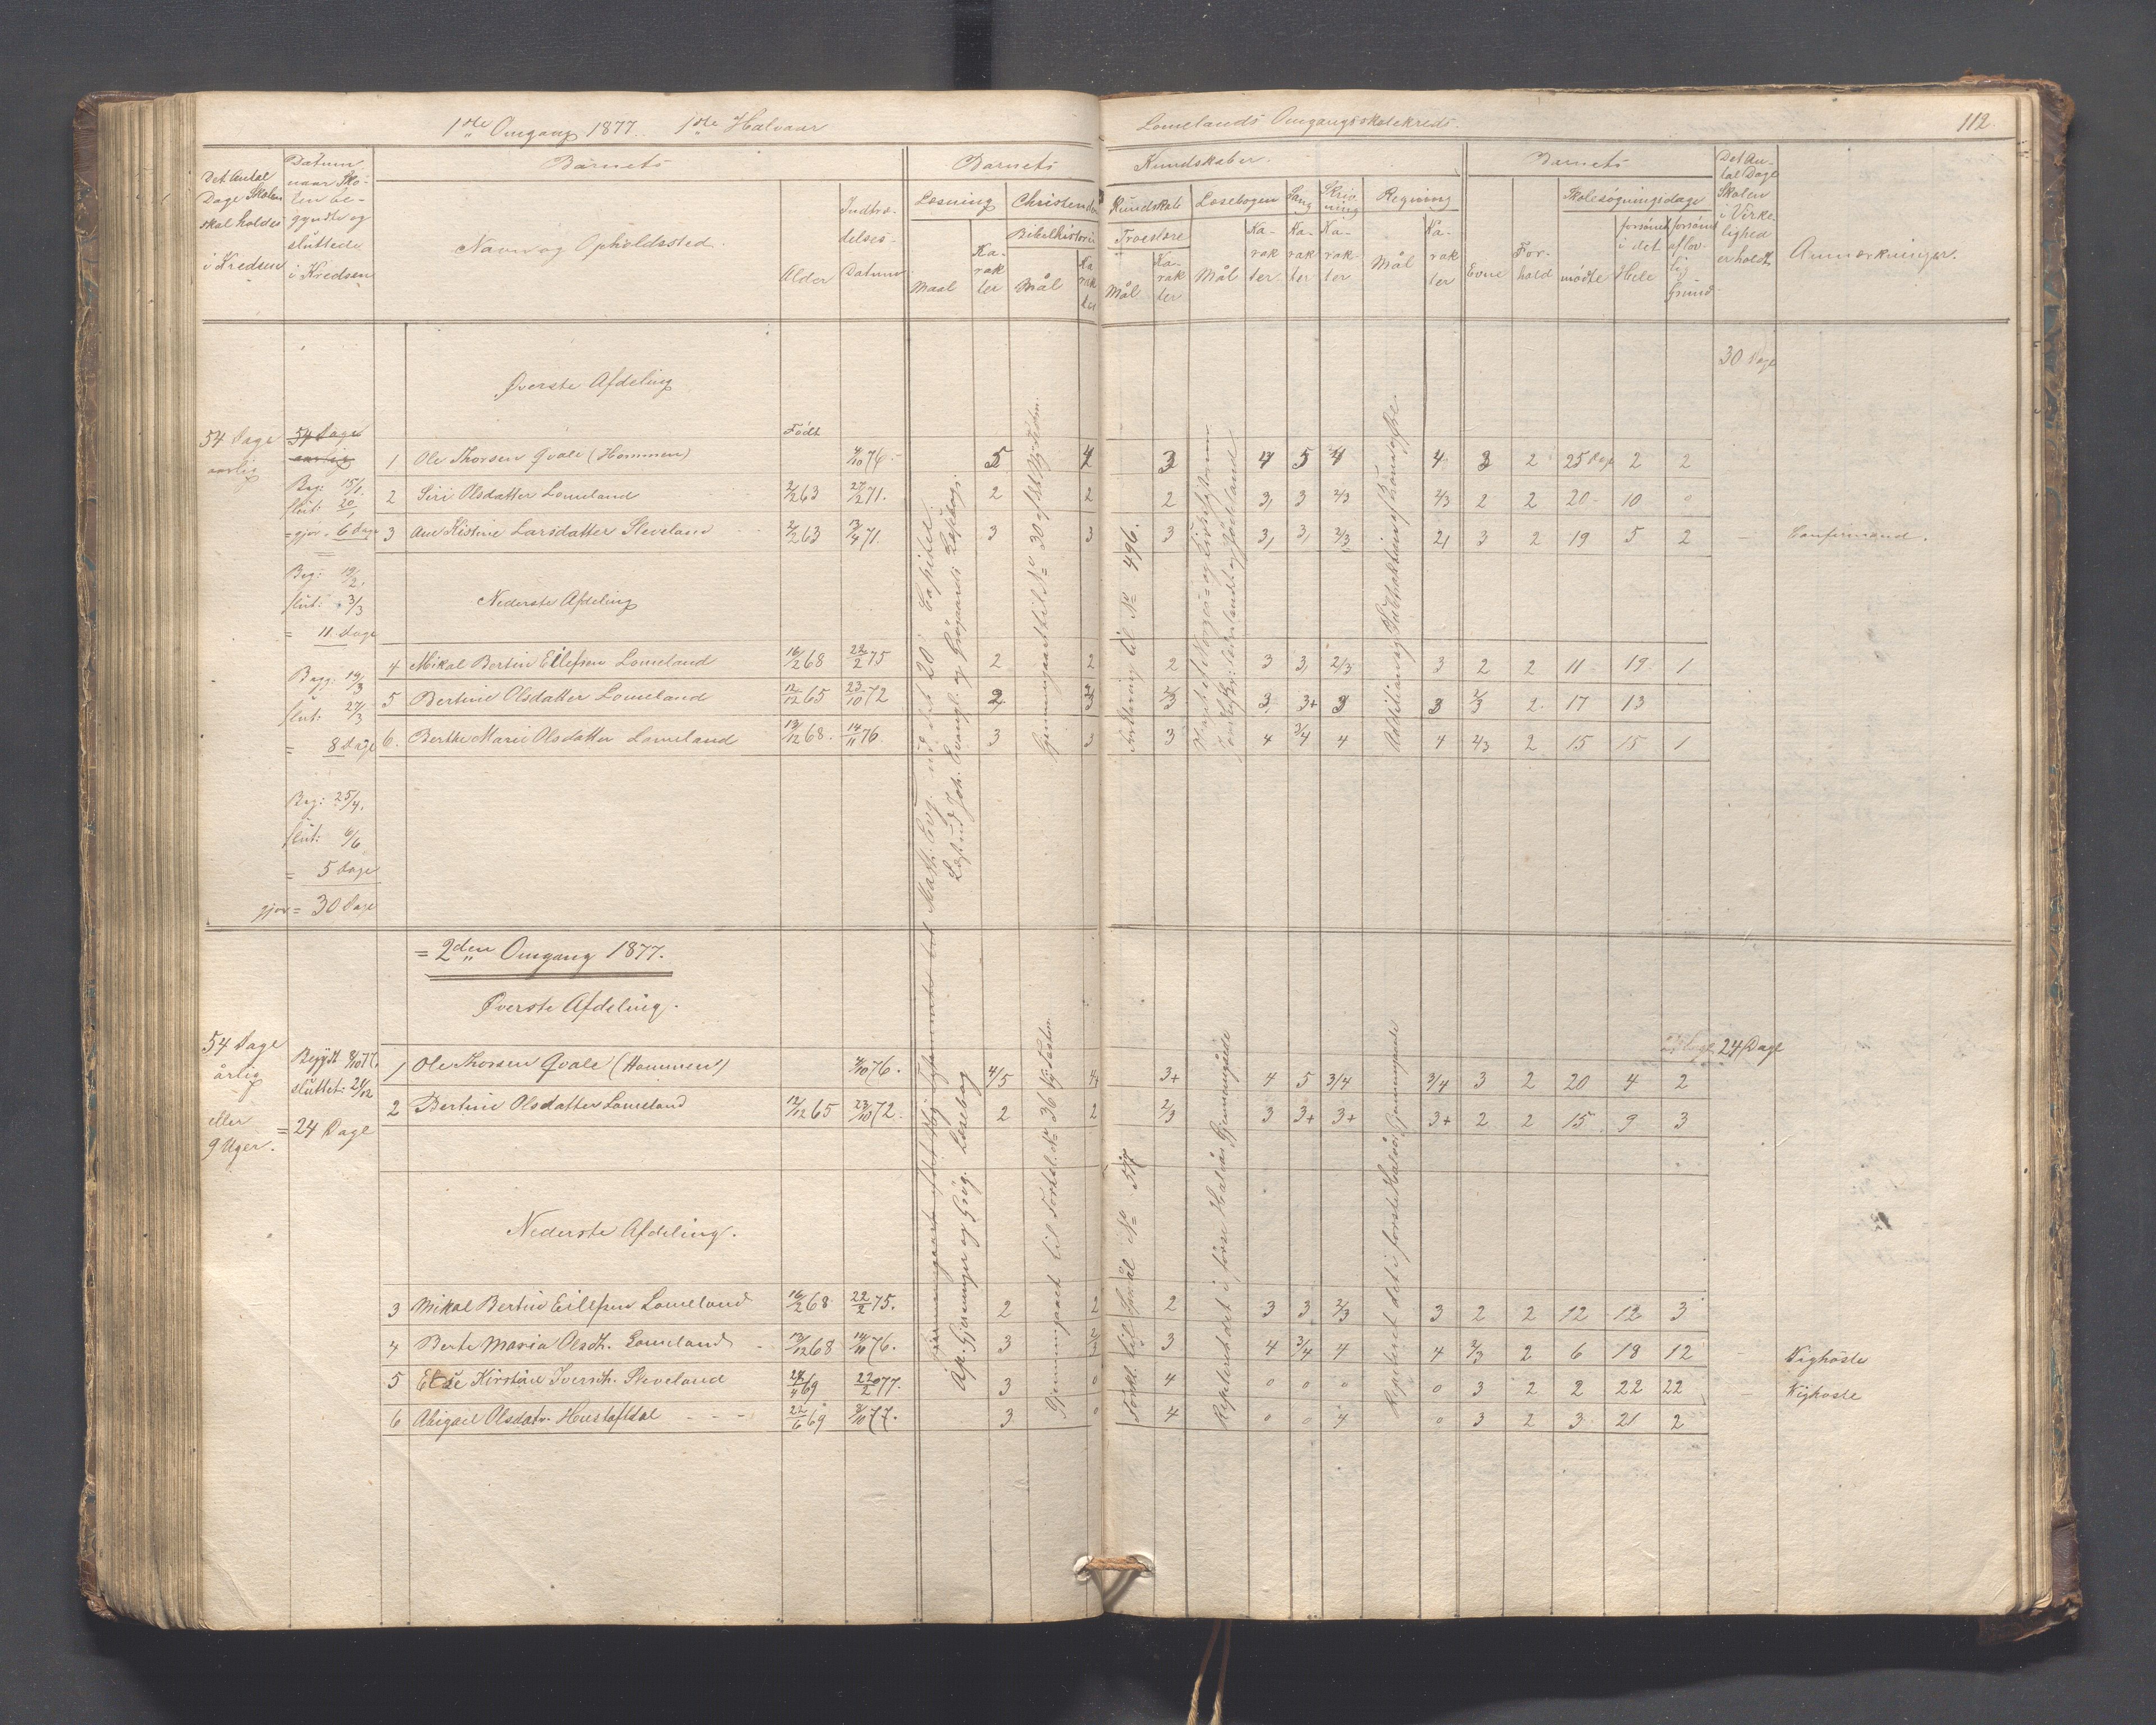 1ste Omgang 1877. 1ste Halvaar
Lomelands Omgangsskolekreds.
112.
Det Antal Dage Skolen skal holdes i Kredsen
Datum naar Skolen begyndte og sluttede i Kredsen
Barnets
Navn og Opholdssted.
Alder
Indtrædelses-Datum
Barnets
Kundskaber.
Læsning
Maal
Karakter
Christendoms
Kundskab
Bibelhistorie
Mål
Karakter
Troeslære
Mål
Karakter
Læsebogen
Mål
Karakter
Sang
Karakter
Skrivning
Karakter
Regning
Mål
Karakter
Barnets
Evne
Forhold
Skolesøgningsdage
mødte
forsømt i det Hele
forsømt af lovlig Grund
Det Antal Dage Skolen i Virkelighed er holdt
Anmærkninger.
30 Dage
Øverste Afdeling
54 Dage aarlig
54 Dage aarlig
Født
1 Ole Thorsen Qvale (Hommen) 4/10 76. 5 4 3 4 5 4 4 3 2 25 Dage 2 2
Beg: 15/1
slut: 20/1
= gjør = 6 Dage
2 Siri Olsdatter Lomeland 2/2 63 27/2 71. 2 2 2 3 3 2/3 2/3 2 2 20 10 0
3 Ane Kistine Larsdatter Steveland 2/2 63 13/4 71. 3 3 3 3 3 2/3 2 3 2 19 5 2 Konfirmand.
Beg: 19/2
slut: 3/3
= 11 Dage
Nederste Afdeling
4 Mikal Bertin Eilefsen Lomeland 16/2 68 22/2 75 2 2 2 3 3 2/3 3 2 2 11 19 1
Begg: 19/3
slut: 27/3
= 8 Dage
5 Bertine Olsdatter Lomeland 12/12 65 23/10 72 2 3 2/3 3 3+ 3 3 2/3 2 17 13
6. Berthe Marie Olsdatter Lomeland 13/12 68. 14/11 76 3 3 3 4 3/4 4 4 2/3 2 15 15 1
Beg: 25/4.
slut: 6/6
= 5 Dage
gjør = 30 Dage
ud det 20 Capitel.
Læst ud Joh. Evangl. og Grøgaards Læsebog.
Gjennemgaaet til No 30
Forklaring til No 496.
= 2den Omgang 1877.
Øverste Afdeling.
54 Dage årlig eller 9 Uger.
Begyndt 8/10 77.
sluttet: 21/12
= 24 Dage
24 Dage
1 Ole Thorsen Qvale (Hommen) 4/10 76. 4/5 4+ 3+ 4 5 3/4 3/4 3 2 20 4 2
2 Bertine Olsdatter Lomeland 12/12 65 23/10 72. 2 2 2/3 3 3+ 3+ 3+ 2 2 15 9 3
Nederste Afdeling.
3 Mikal Bertin Eilefsen Lomeland 16/2 68 22/2 75. 2 2 2 3 3 2/3 3 2 2 12 12 3
4 Berte Maria Olsdt. Lomeland 13/12 68 14/11 76. 3 2/3 3 4 3/4 4 4 2/3 2 6 18 12 Kighoste
5 Else Kirstine Iversdt. Steveland 28/4 69 22/2 77. 3 0 4 0 0 0 0 3 2 2 22 22 Kighoste
6 Abigael Olsdatr. Hustoftdal 22/6 69 8/10 77. 3 0 4 0 0 4 0 3 2 3 21 2
Gjennemgaaet til Forkl. No 36
Forkl. til Spmål No
Repeteret det i første Halvår Gjennemgåede
Repeteret det i første Halvår Gjennemgaaede